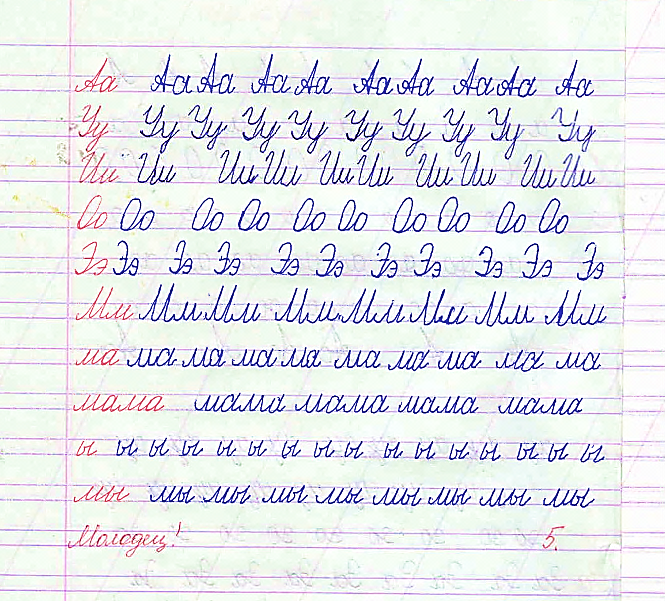 Аа Аа Аа Аа Аа Аа Аа Аа Аа Аа
Уу Уу Уу Уу Уу Уу Уу Уу Уу Уу
Ии Ии Ии Ии Ии Ии Ии Ии Ии Ии
Оо Оо Оо Оо Оо Оо Оо Оо Оо Оо
Ээ Ээ Ээ Ээ Ээ Ээ Ээ Ээ Ээ Ээ Ээ
Мм Мм Мм Мм Мм Мм Мм Мм
ма ма ма ма ма ма ма ма ма ма
мама мама мама мама мама
ы ы ы ы ы ы ы ы ы ы ы ы ы ы ы ы
мы мы мы мы мы мы мы мы мы
Молодец! 5.